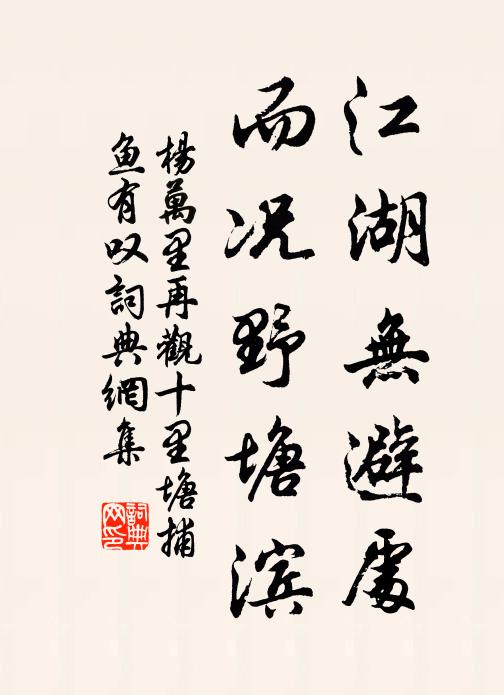 江湖無避處
而況野塘滨
楊萬里再觀十里塘捕
魚有叹詞典網集
詞典网印